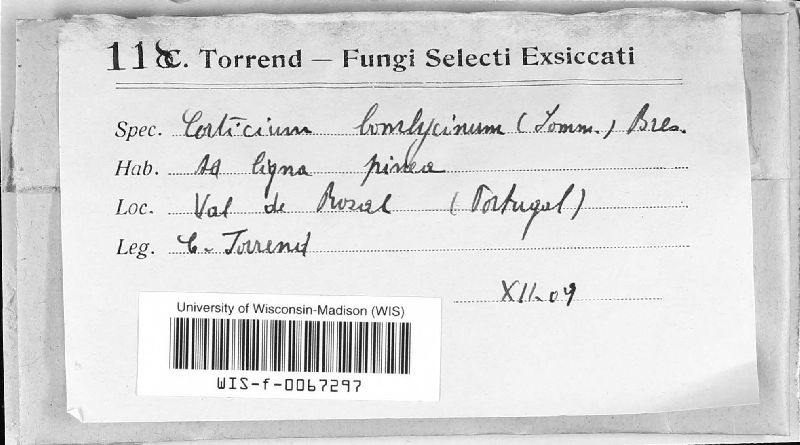 118 C. Torrend — Fungi Selecti Exsiccati
Spec. Corticium bombycinum (Somm.) Bres.
Hab. Ad ligna pinea
Loc. Val de Rosal (Portugal)
Leg. C. Torrend
XII-09
University of Wisconsin-Madison (WIS)
WIS-f-0067297